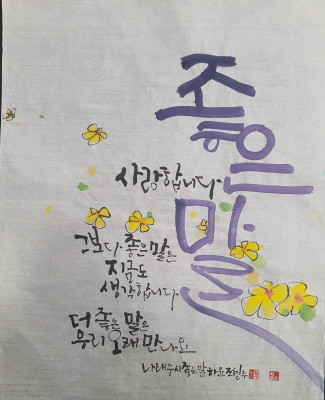 좋은
말
사랑합니다
그보다 좋은 말은
지금도
생각합니다
더 좋은 말은
우리 오래 만나요
나태주 시 좋은 말 하윤 조현주